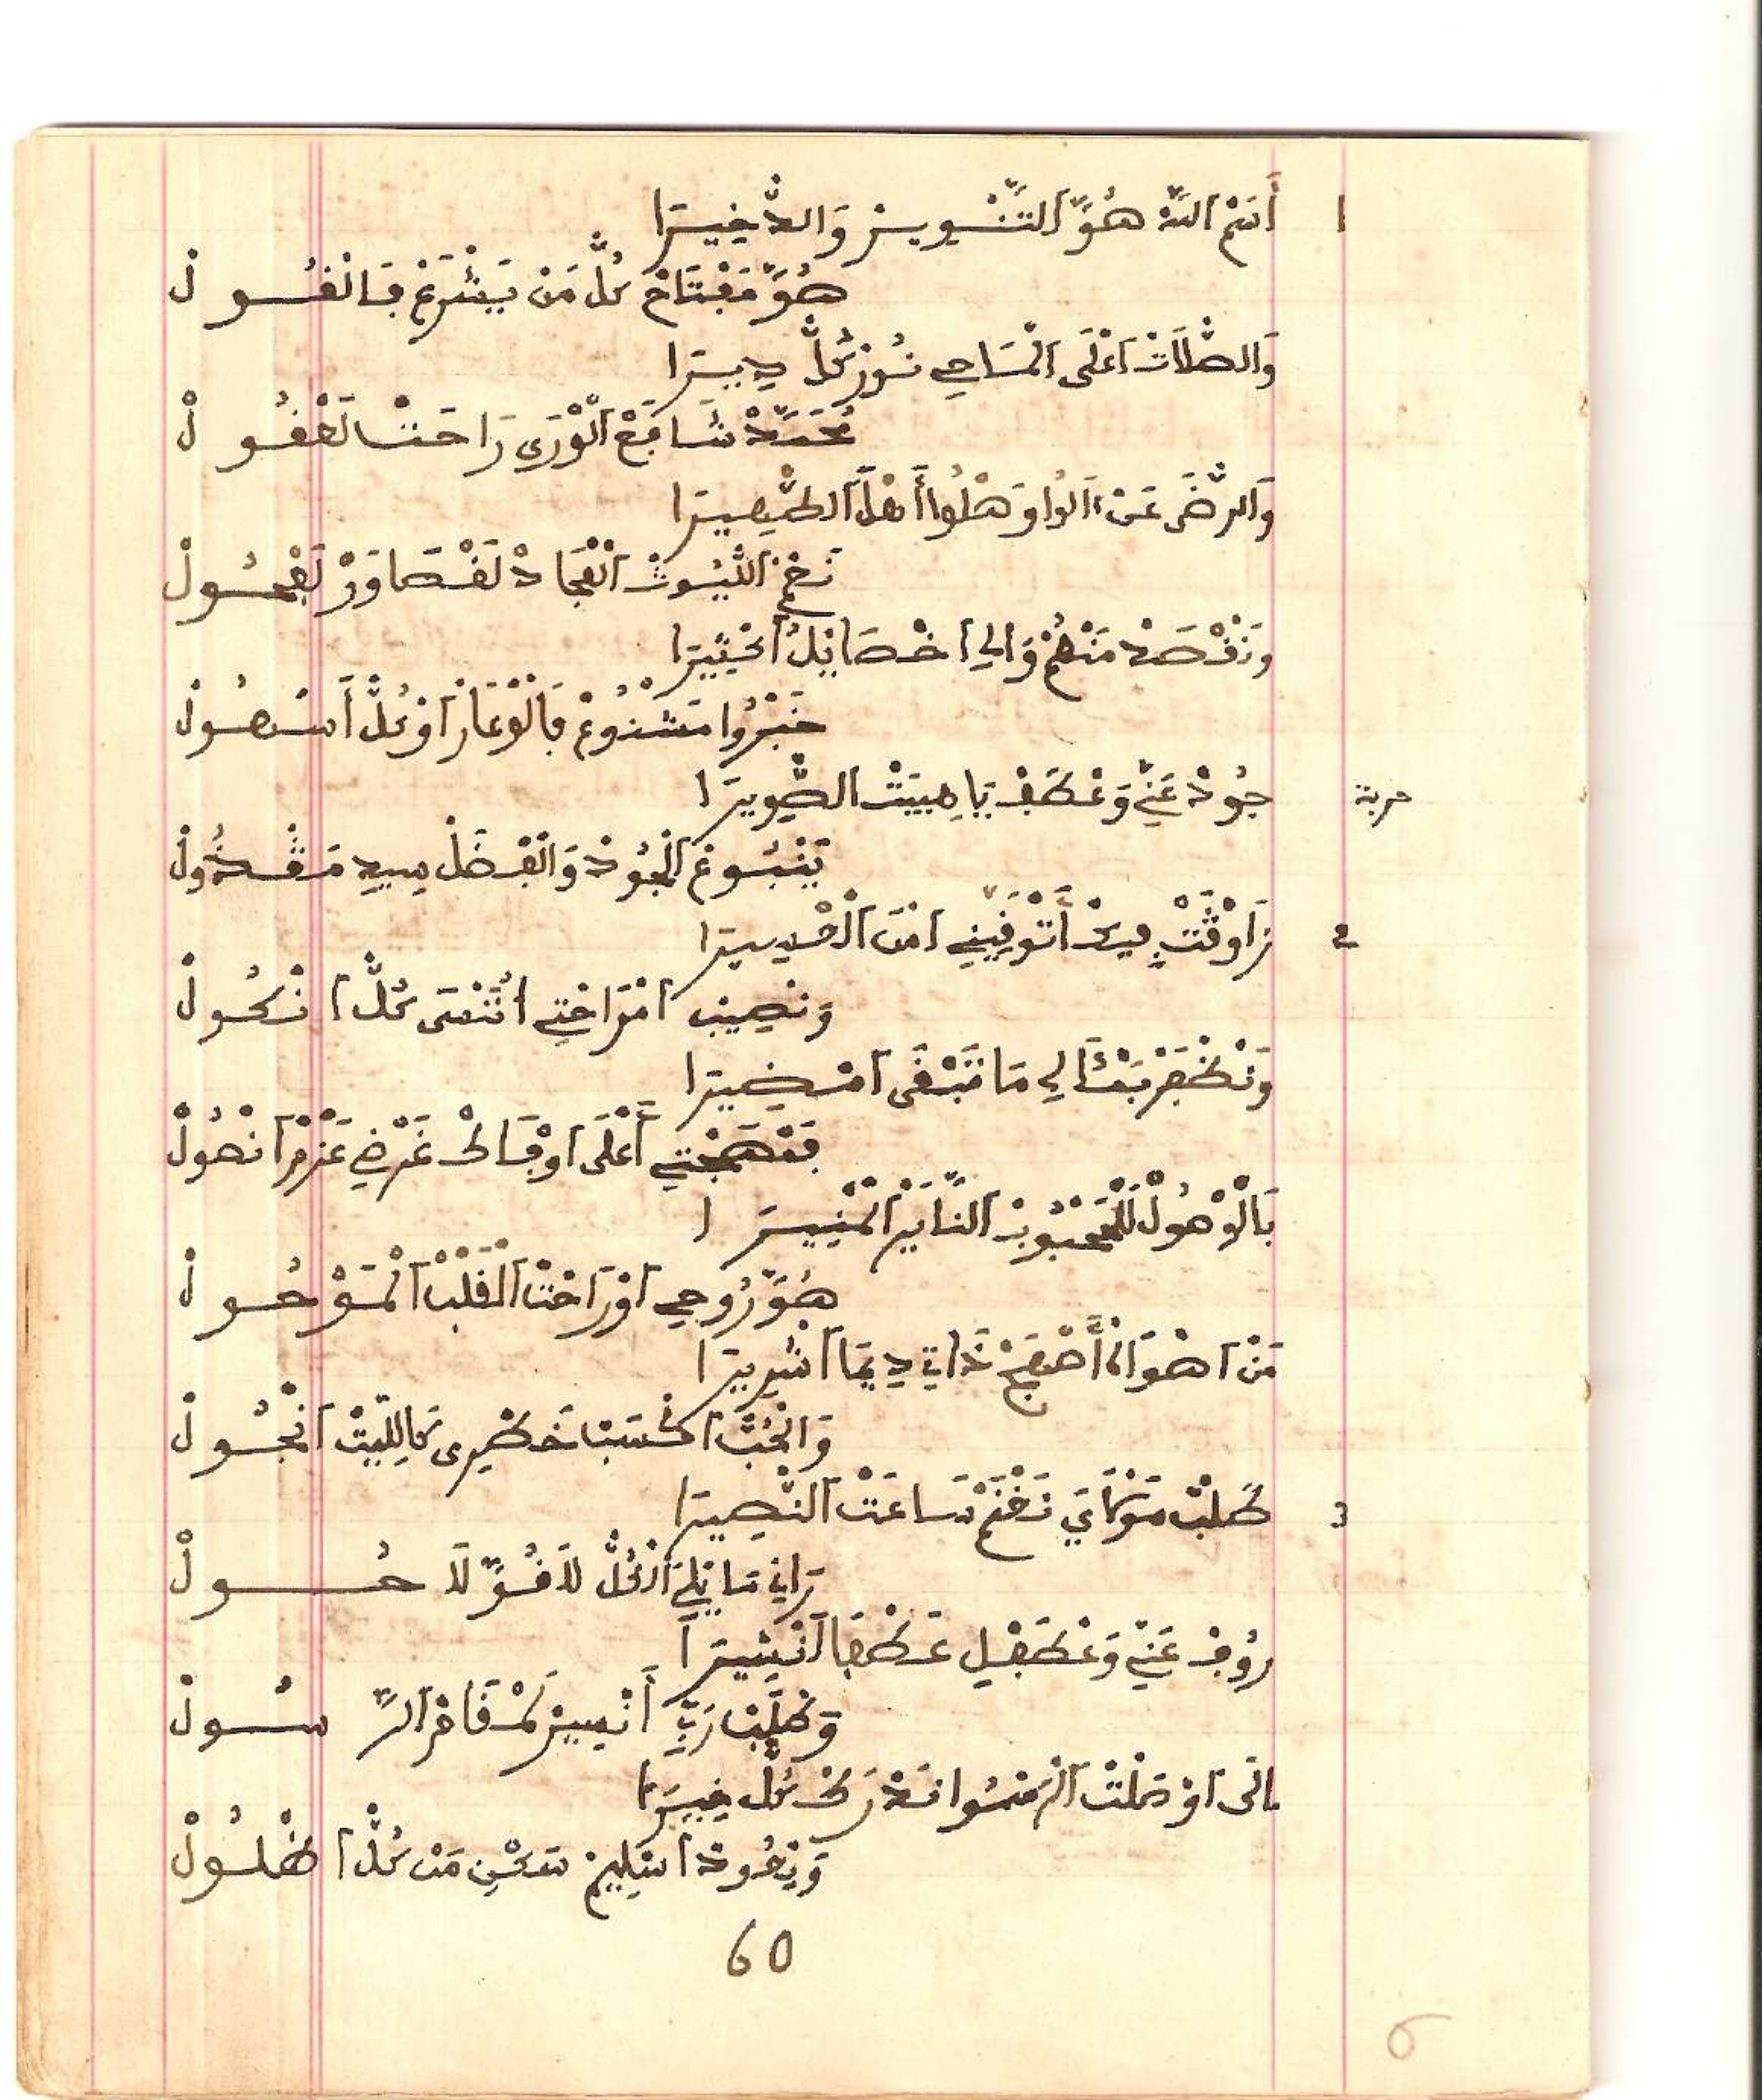 1 أَسَمْ اللَّهْ هُوَّ التَّنْوِيرْ وَالدّْخِيرَا
هُوَّ مَفْتَاحْ كُلّْ مَنْ يَشْرَعْ فَالْقُــولْ
وَالصّْلَاتْ اعْلَى الْمَاحِي نُورْ كُلّْ دِيرَا
مُحَمَّدْ شَافَعْ الْوْرَى رَاحَتْ لَعْقُــولْ
وَالرّْضَى عَنْ آلُوا وَهْلُوا أَهْلْ الْبْصِيرَا
نَعَمْ اللّْيُوثْ لَمْجَادْ لَقْصَاوَرْ لَفْحُــولْ
وَنَقْصَدْ مَنْهُمْ وَالِي اخْصَايْلُ اكْثِيرَا
خَبْرُوا مَشْنُوعْ فَالْوْعَارْ اوْ كُلّْ أَسْهُــولْ
حربة جُودْ عَنِّي وَعْطَفْ يَا هِيبَتْ الصّْوِيرَا
يَنْبُــوعْ الْجُودْ وَالْفْضَلْ سِيدِي مَڭْــدُولْ
2 زَاوْڭَتْ فِيكْ أَتْوَفِّينِي امْنَ الْخْدِيرَا
وَنْصِيبْ امْرَاحْتِي اتَّنْسَى كُلّْ انْكُــولْ
وَنْظْفَرْ بَمْنَالِي مَا تَبْقَى امْضِيرَا
فَمْهَجْتِي أَعْلَى اوْفَاكْ غَرْضِي عَزْمْ انْهُولْ
بَالْوْصُولْ لْلْمَحْبُوبْ النَّايَرْ الْمْنِيــرَا
هُوَّ رُوحِي اوْ رَاحْتْ الْقَلْبْ الْمَوْحُــولْ
مَنْ اهْوَاهْ أَصْبَحْ ذَاتِي دِيمَا اشْرِيرَا
وَالْحُبّْ اكْسَبْ خَطْرِي كَاللِّيتْ انْجُــولْ
3 طَلْبْ مَوْلَايَ نَغْنَمْ سَاعَتْ النّْصِيرَا
رَانِي مَايَلْ انْكُلّْ لَا قُوَّ لَا حُــولْ
رُوفْ عَنِّي وَعْطَفْلِي عَطْفَا انْشِيرَا
وَطْلَبْ رَبِّي أَنْصِيرْ لَمْقَامْ الرَّسُــولْ
اوْصَلْتْ الرَمْسُوا نَدْرَكْ كُلّْ خِيرَا
وَنْعُودْ اسْلِيمْ مَنْ كُلّْ اعْلُــولْ
60